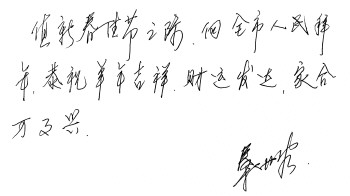 值新春佳节之际、向全市人民拜
年、恭祝羊年吉祥、财运发达、家合
万事兴.